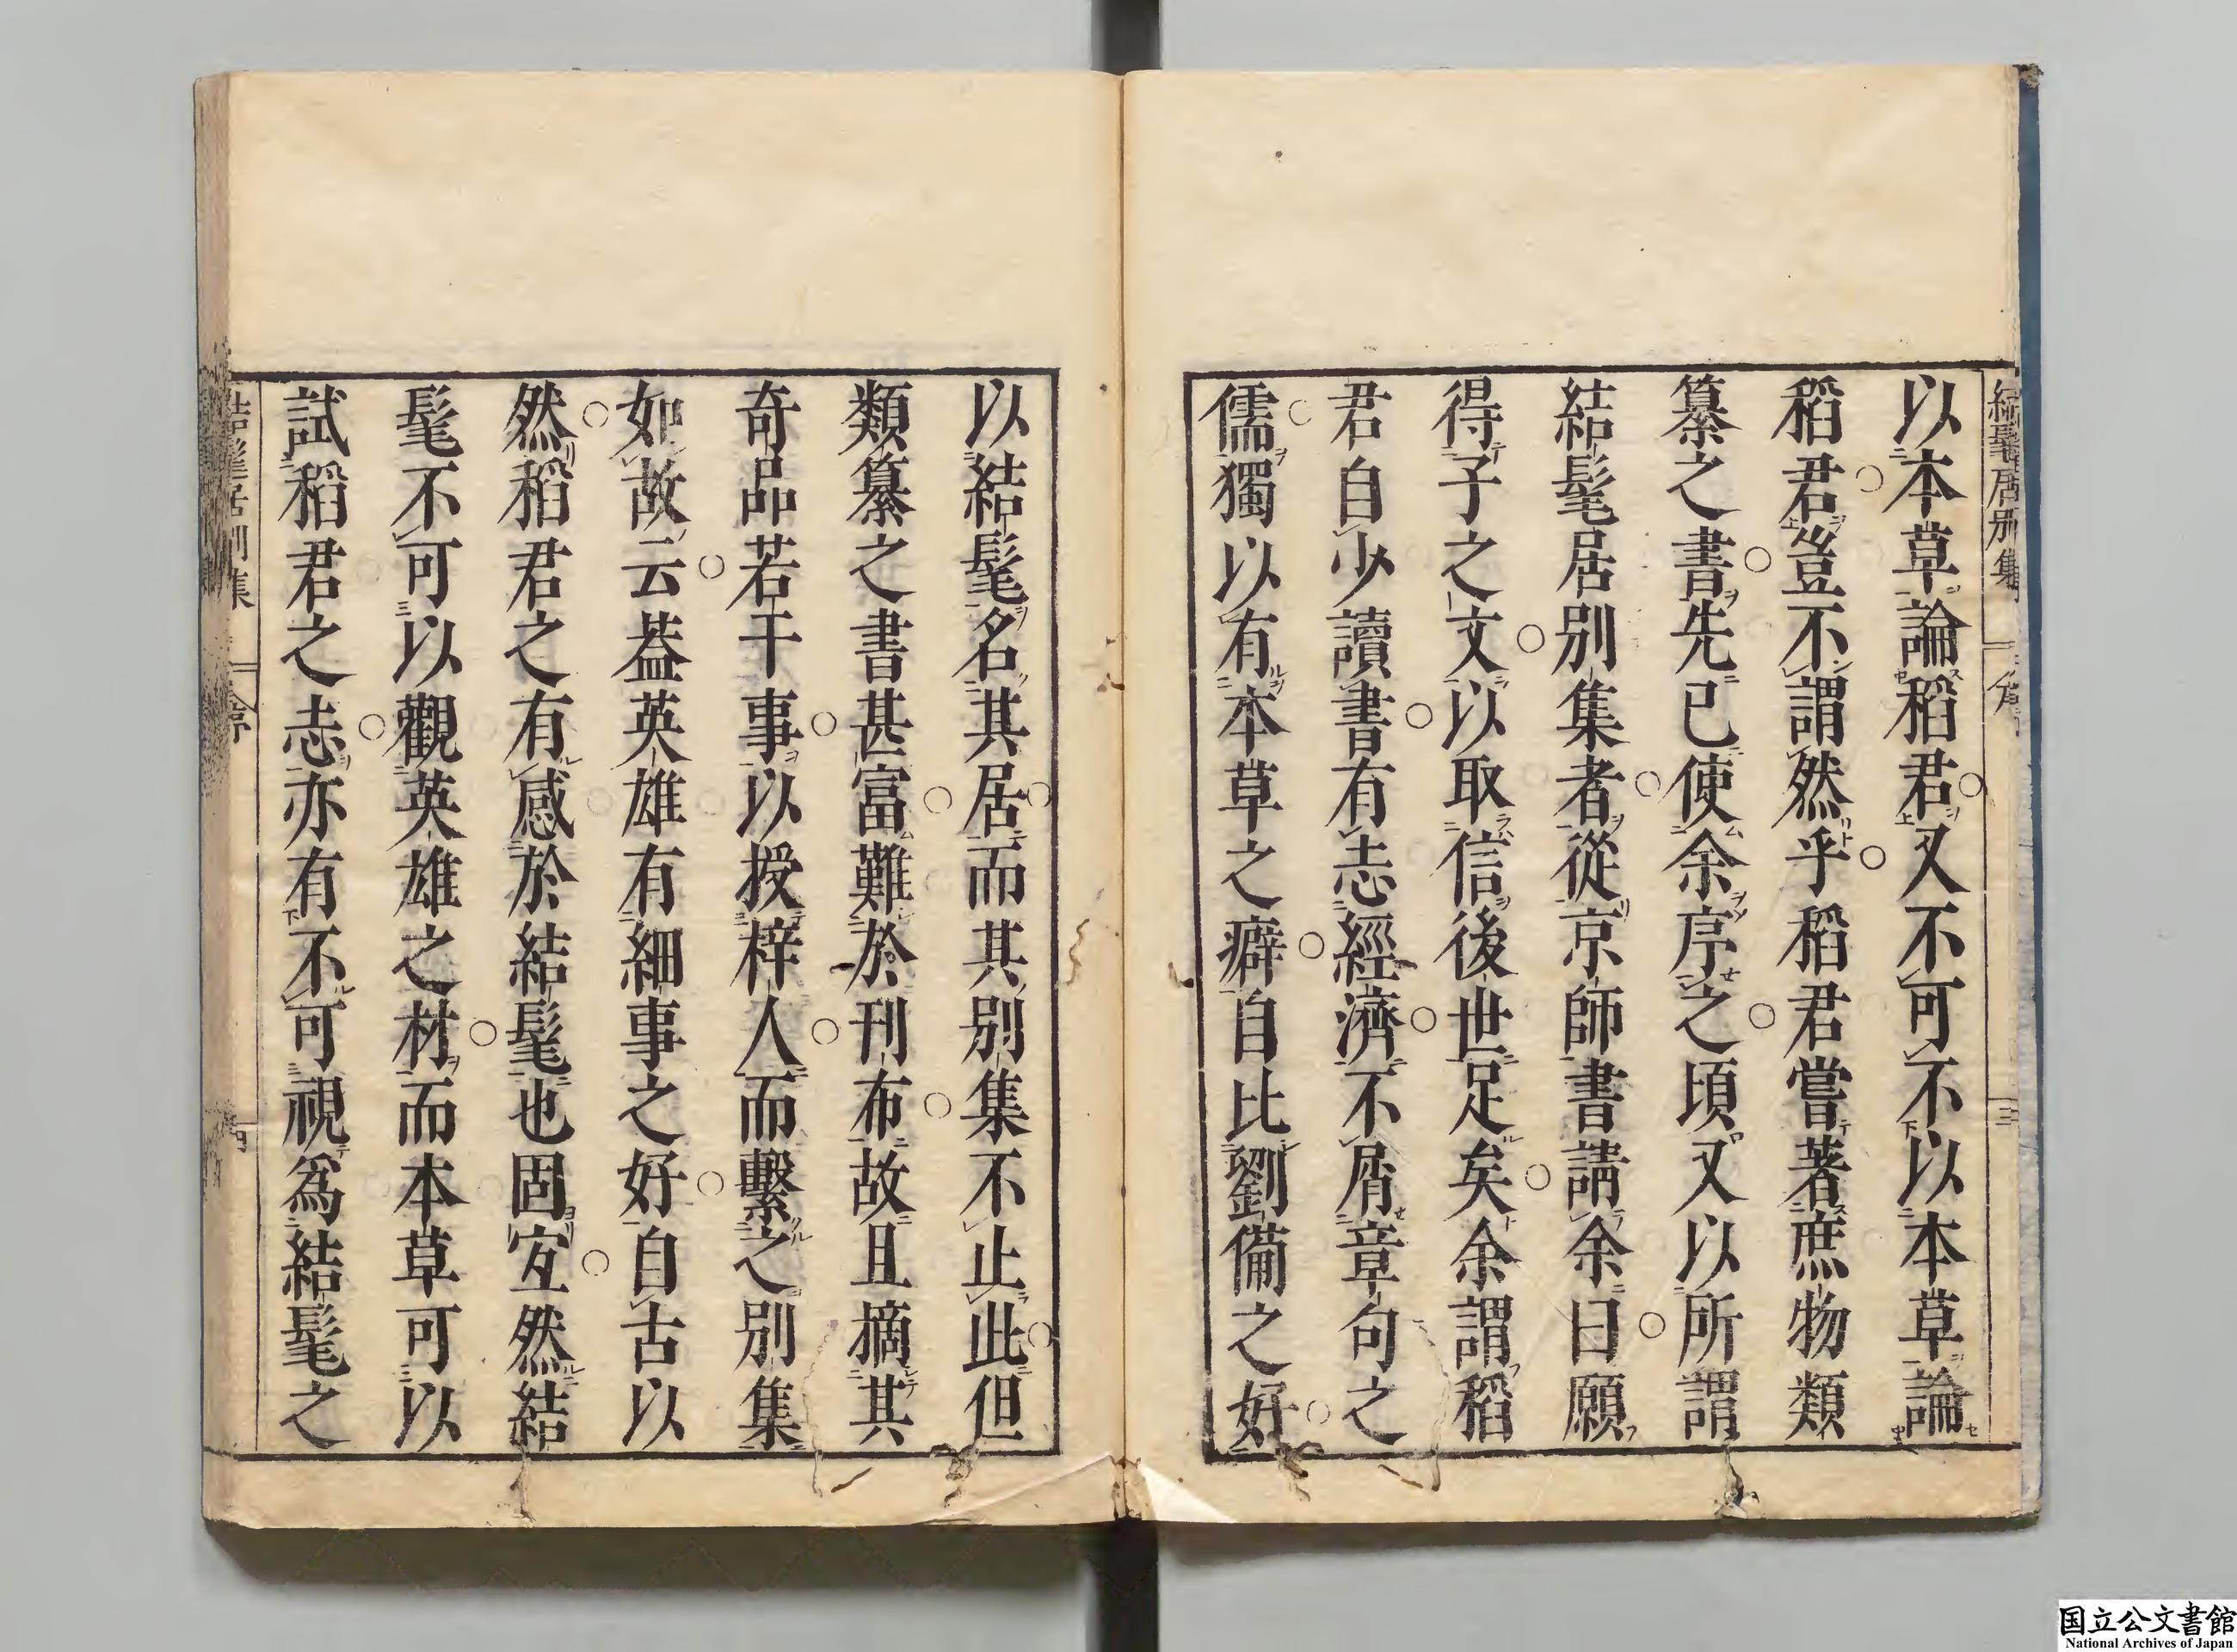 結髦居別集 序 三
以本草論稻君又不可不以本草論
稻君豈不謂然乎稻君嘗著庶物類
纂之書先已使余序之頃又以所謂
結髦居別集者從京師書請余曰願
得子之文以取信後世足矣余謂稻
君自少讀書有志經濟不屑章句之
儒獨以有本草之癖自比劉備之好
以結髦名其居而其別集不止此但
類纂之書甚富難於刊布故且摘其
奇品若干事以授梓人而繫之別集
如故云葢英雄有細事之好自古以
然稻君之有感於結髦也固宐然結
髦不可以觀英雄之材而本草可以
試稻君之志亦有不可視爲結髦之
結髦居別集 序 四
国立公文書館
National Archives of Japan